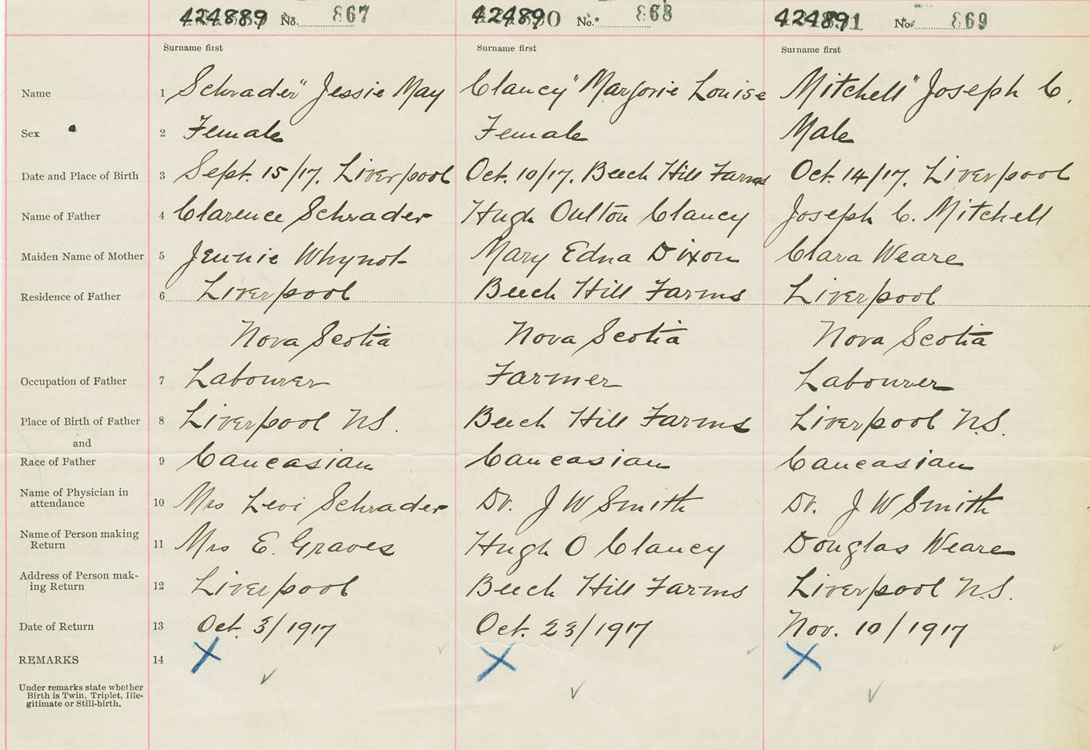 424889 No. 867 424890 No. 868 424891 No. 869
Surname first Surname first Surname first
Name 1 Schrader" Jessie May Clancy" Marjorie Louise Mitchell" Joseph C.
Sex 2 Female Female Male
Date and Place of Birth 3 Sept. 15/17. Liverpool Oct. 10/17. Beech Hill Farms Oct. 14/17. Liverpool
Name of Father 4 Clarence Schrader Hugh Oulton Clancy Joseph C. Mitchell
Maiden Name of Mother 5 Jennie Whynot Mary Edna Dixon Clara Weare
Residence of Father 6 Liverpool Beech Hill Farms Liverpool
Nova Scotia Nova Scotia Nova Scotia
Occupation of Father 7 Labourer Farmer Labourer
Place of Birth of Father 8 Liverpool N.S. Beech Hill Farms Liverpool N.S.
and
Race of Father 9 Caucasian Caucasian Caucasian
Name of Physician in
attendance 10 Mrs Levi Schrader Dr. J W Smith Dr. J W Smith
Name of Person making
Return 11 Mrs E. Graves Hugh O Clancy Douglas Weare
Address of Person mak-
ing Return 12 Liverpool Beech Hill Farms Liverpool N.S.
Date of Return 13 Oct. 3/1917 Oct. 23/1917 Nov. 10/1917
REMARKS 14
Under remarks state whether
Birth is Twin. Triplet, Ille-
gitimate or Still-birth.